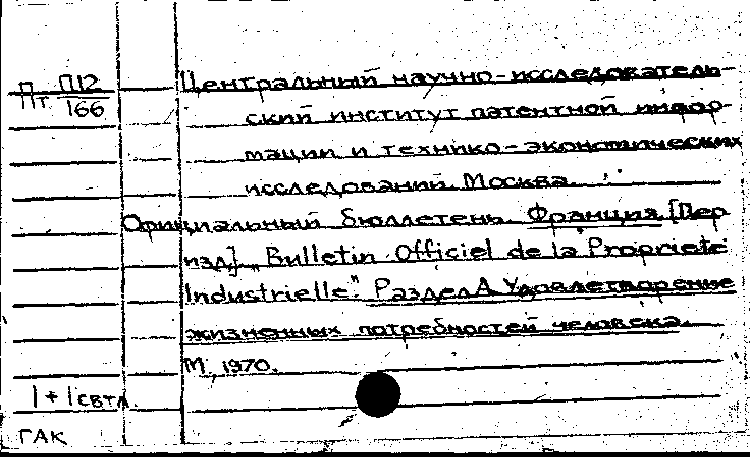 Пт П12 Центральный научно-исследователь-
166 ский институт патентной инфор-
мации и технико-экономических
исследований. Москва.
Официальный бюллетень. Франция. [Пер
изд]. „Bulletin Officiel de la Propriete
Industrielle". Раздел А. Удовлетворение
жизненных потребностей человека.
М., 1970.
1+1 свтл.
ГАК